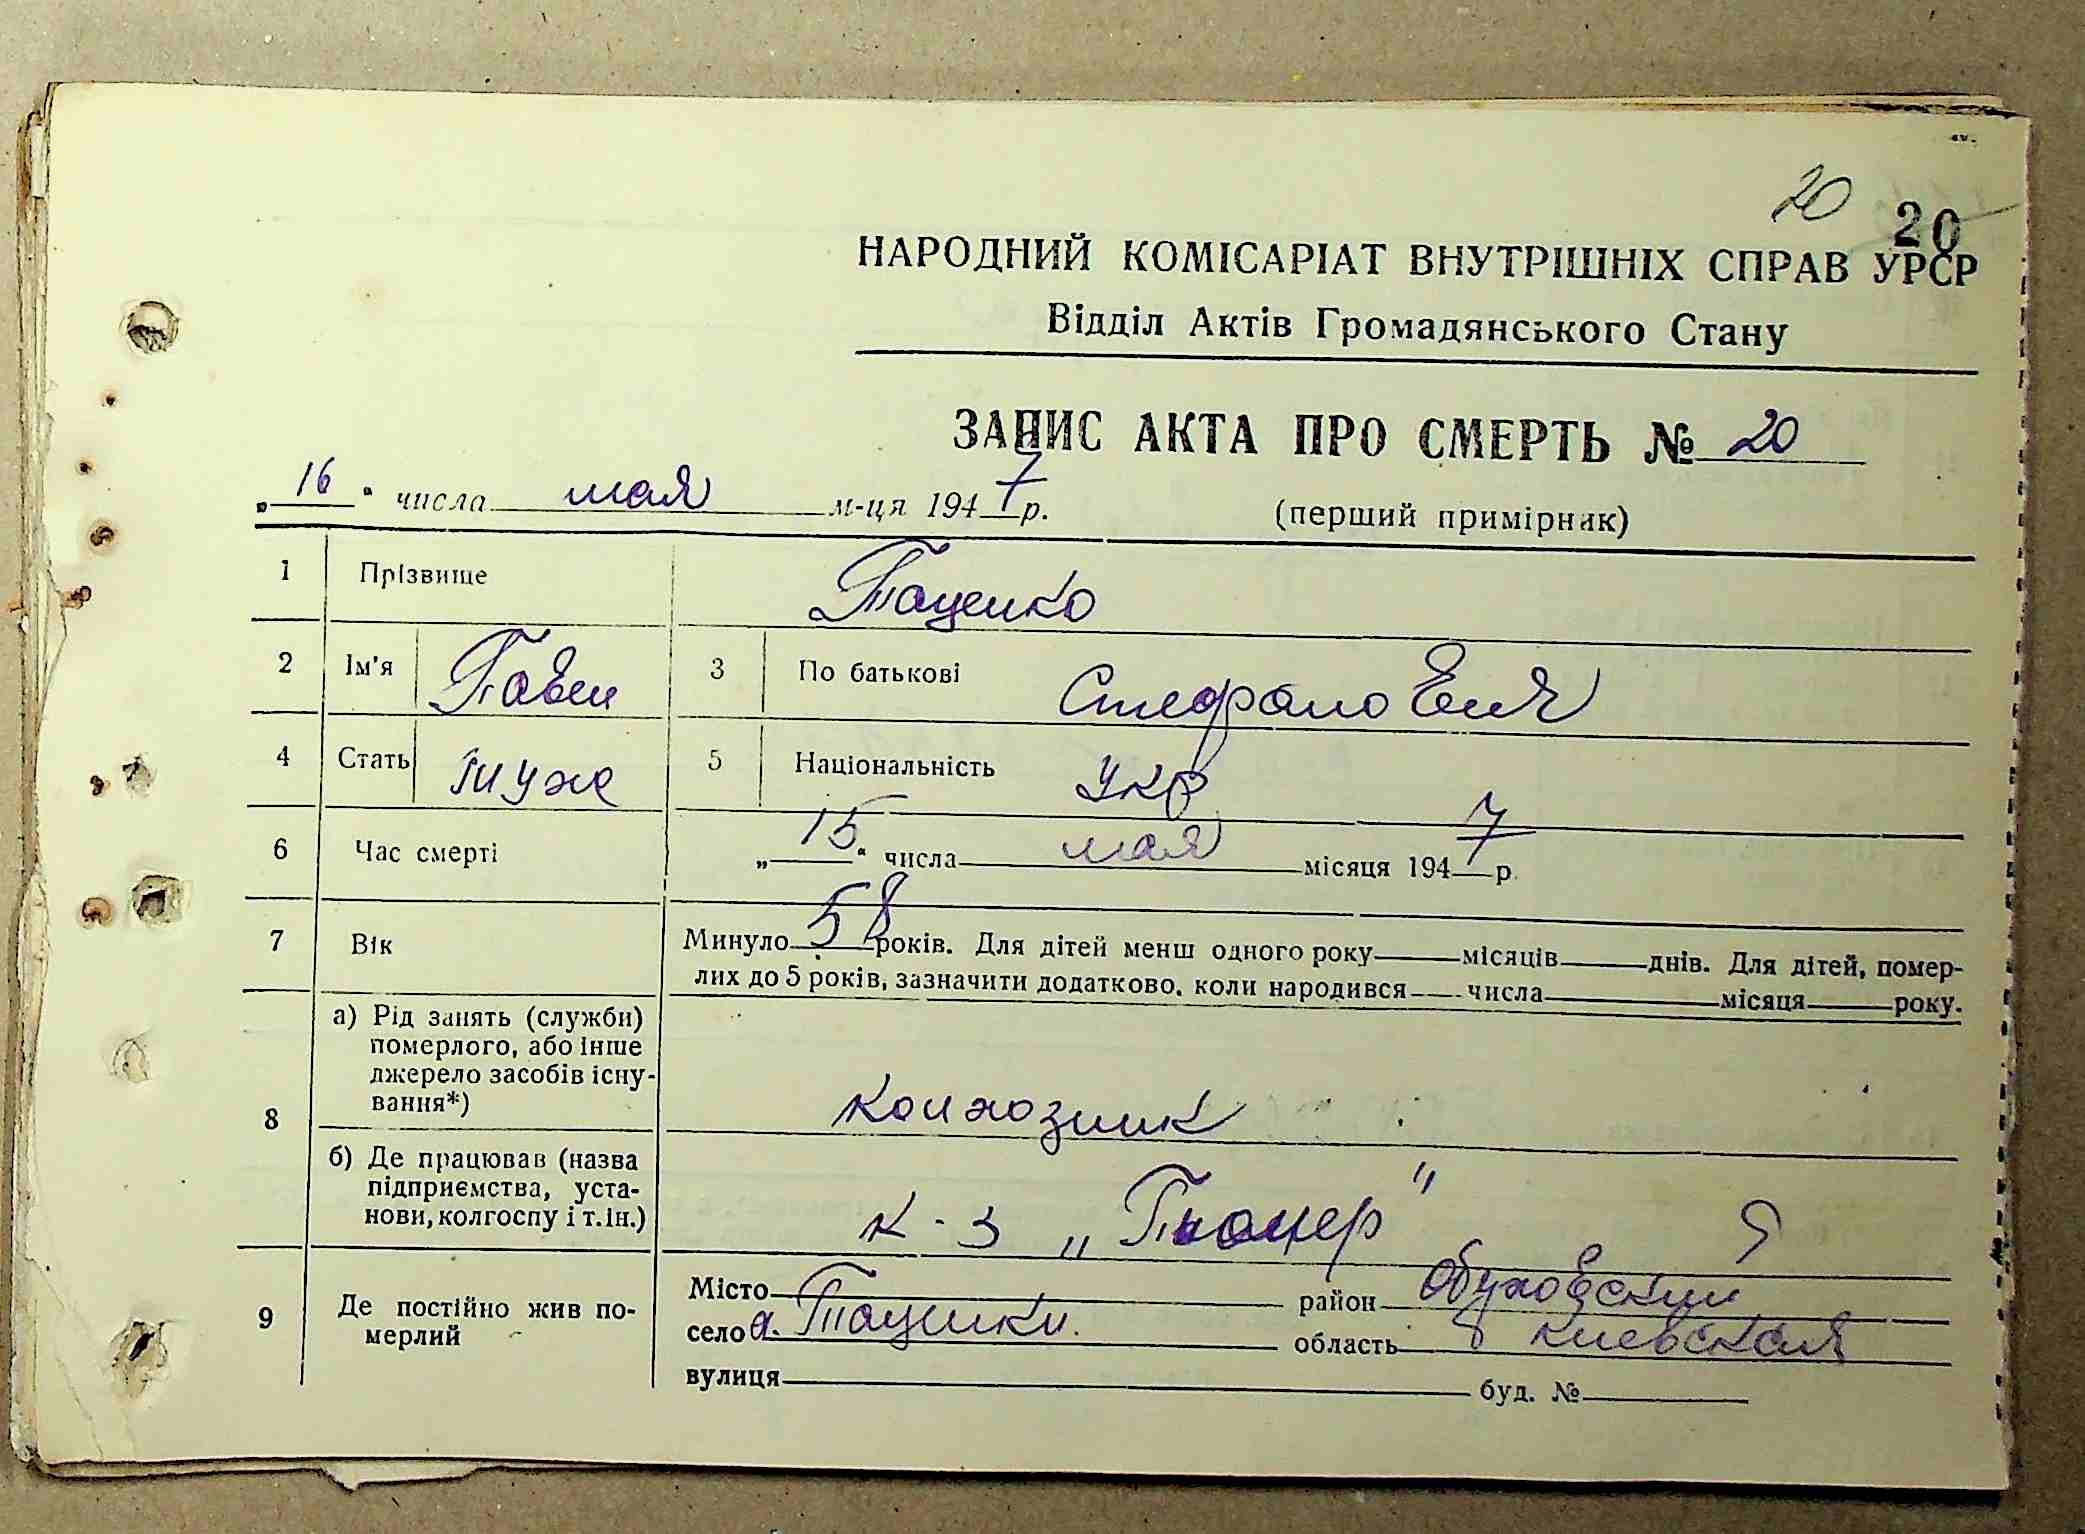 20 20
НАРОДНИЙ КОМІСАРІАТ ВНУТРІШНІХ СПРАВ УРСР
Відділ Актів Громадянського Стану
ЗАПИС АКТА ПРО СМЕРТЬ № 20
„16“ числа мая м-ця 1947 р. (перший примірник)
1 Прізвище Таценко
2 Ім'я Павел 3 По батькові Стефанович
4 Стать муж 5 Національність укр
6 Час смерті „15“ числа мая місяця 1947 р.
7 Вік Минуло 58 років. Для дітей менш одного року місяців днів. Для дітей, помер-
лих до 5 років, зазначити додатково, коли народився числа місяця року.
8 а) Рід занять (служби)
померлого, або інше
джерело засобів існу-
вання*)
колхозник
б) Де працював (назва
підприємства, уста-
нови, колгоспу і т.ін.)
к-з „Пионер"
9 Де постійно жив по-
мерлий
Місто район Обуховский
село с. Таценки область Киевская
вулиця буд. №